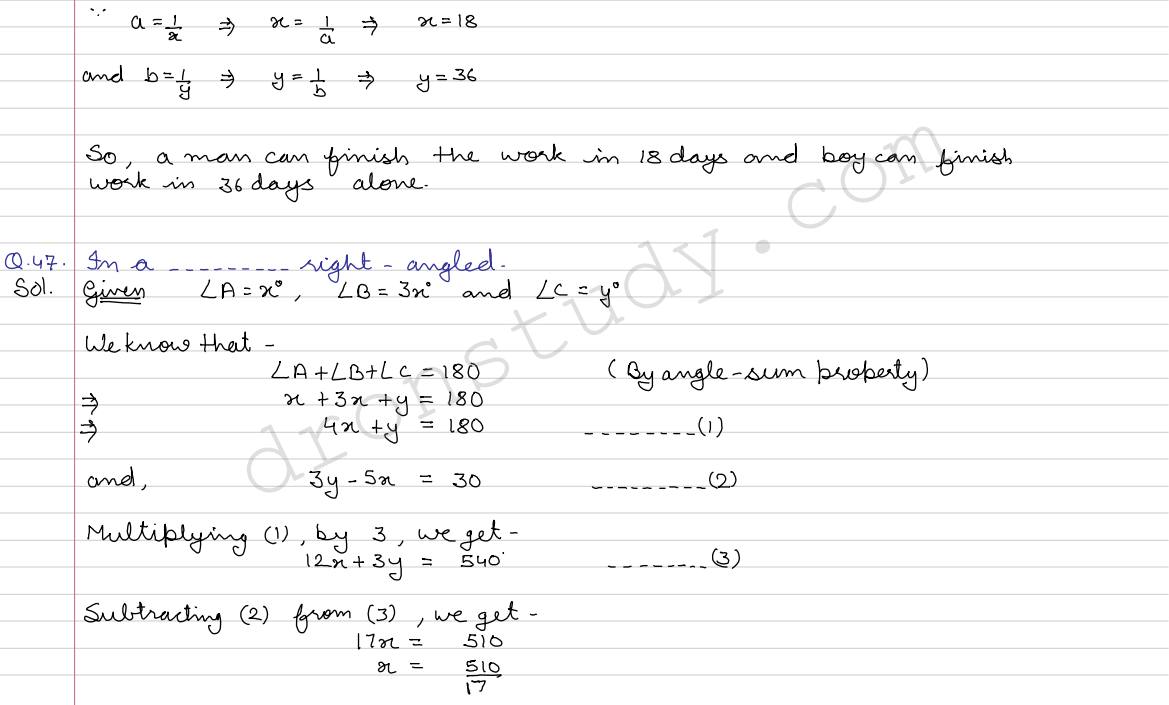 ∵ a = 1/x ⇒ x = 1/a ⇒ x = 18
and b = 1/y ⇒ y = 1/b ⇒ y = 36
So, a man can finish the work in 18 days and boy can finish
work in 36 days alone.
Q.47. In a --------- right-angled.
Sol. Given ∠A = x°, ∠B = 3x° and ∠C = y°
We know that -
∠A + ∠B + ∠C = 180 (By angle-sum property)
⇒ x + 3x + y = 180
⇒ 4x + y = 180 --------(1)
and, 3y - 5x = 30 ---------(2)
Multiplying (1), by 3, we get -
12x + 3y = 540 --------(3)
Subtracting (2) from (3), we get -
17x = 510
x = 510/17
dronstudy.com